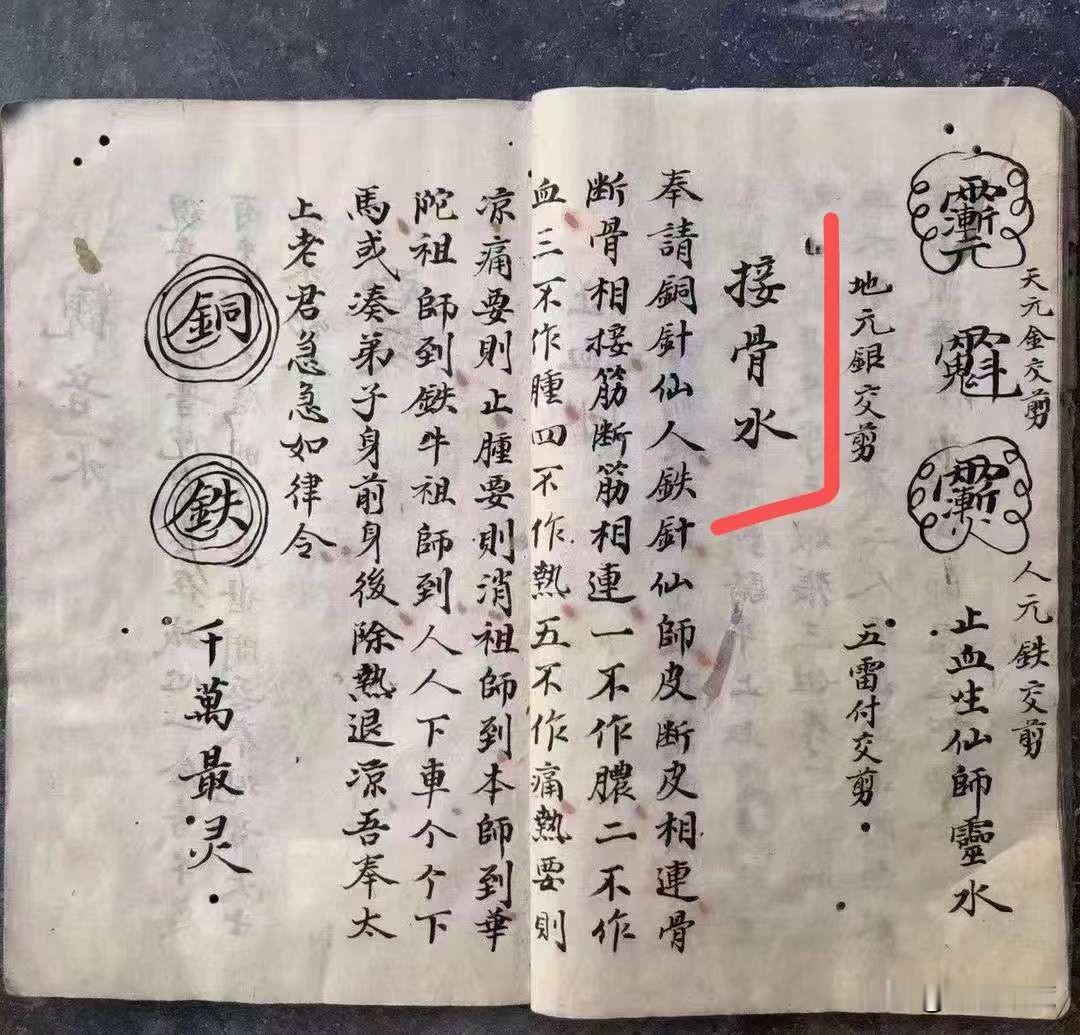 天元金交剪
人元鉄交剪
止血生仙師靈水
地元銀交剪
五雷付交剪
接骨水
奉請銅針仙人鉄針仙師皮断皮相連骨
断骨相接筋断筋相連一不作膿二不作
血三不作腫四不作熱五不作痛熱要則
凉痛要則止腫要則消祖師到本師到華
陀祖師到鉄牛祖師到人人下車个个下
馬或凑弟子身前身後除熱退凉吾奉太
上老君急急如律令
銅
鉄
千萬最灵